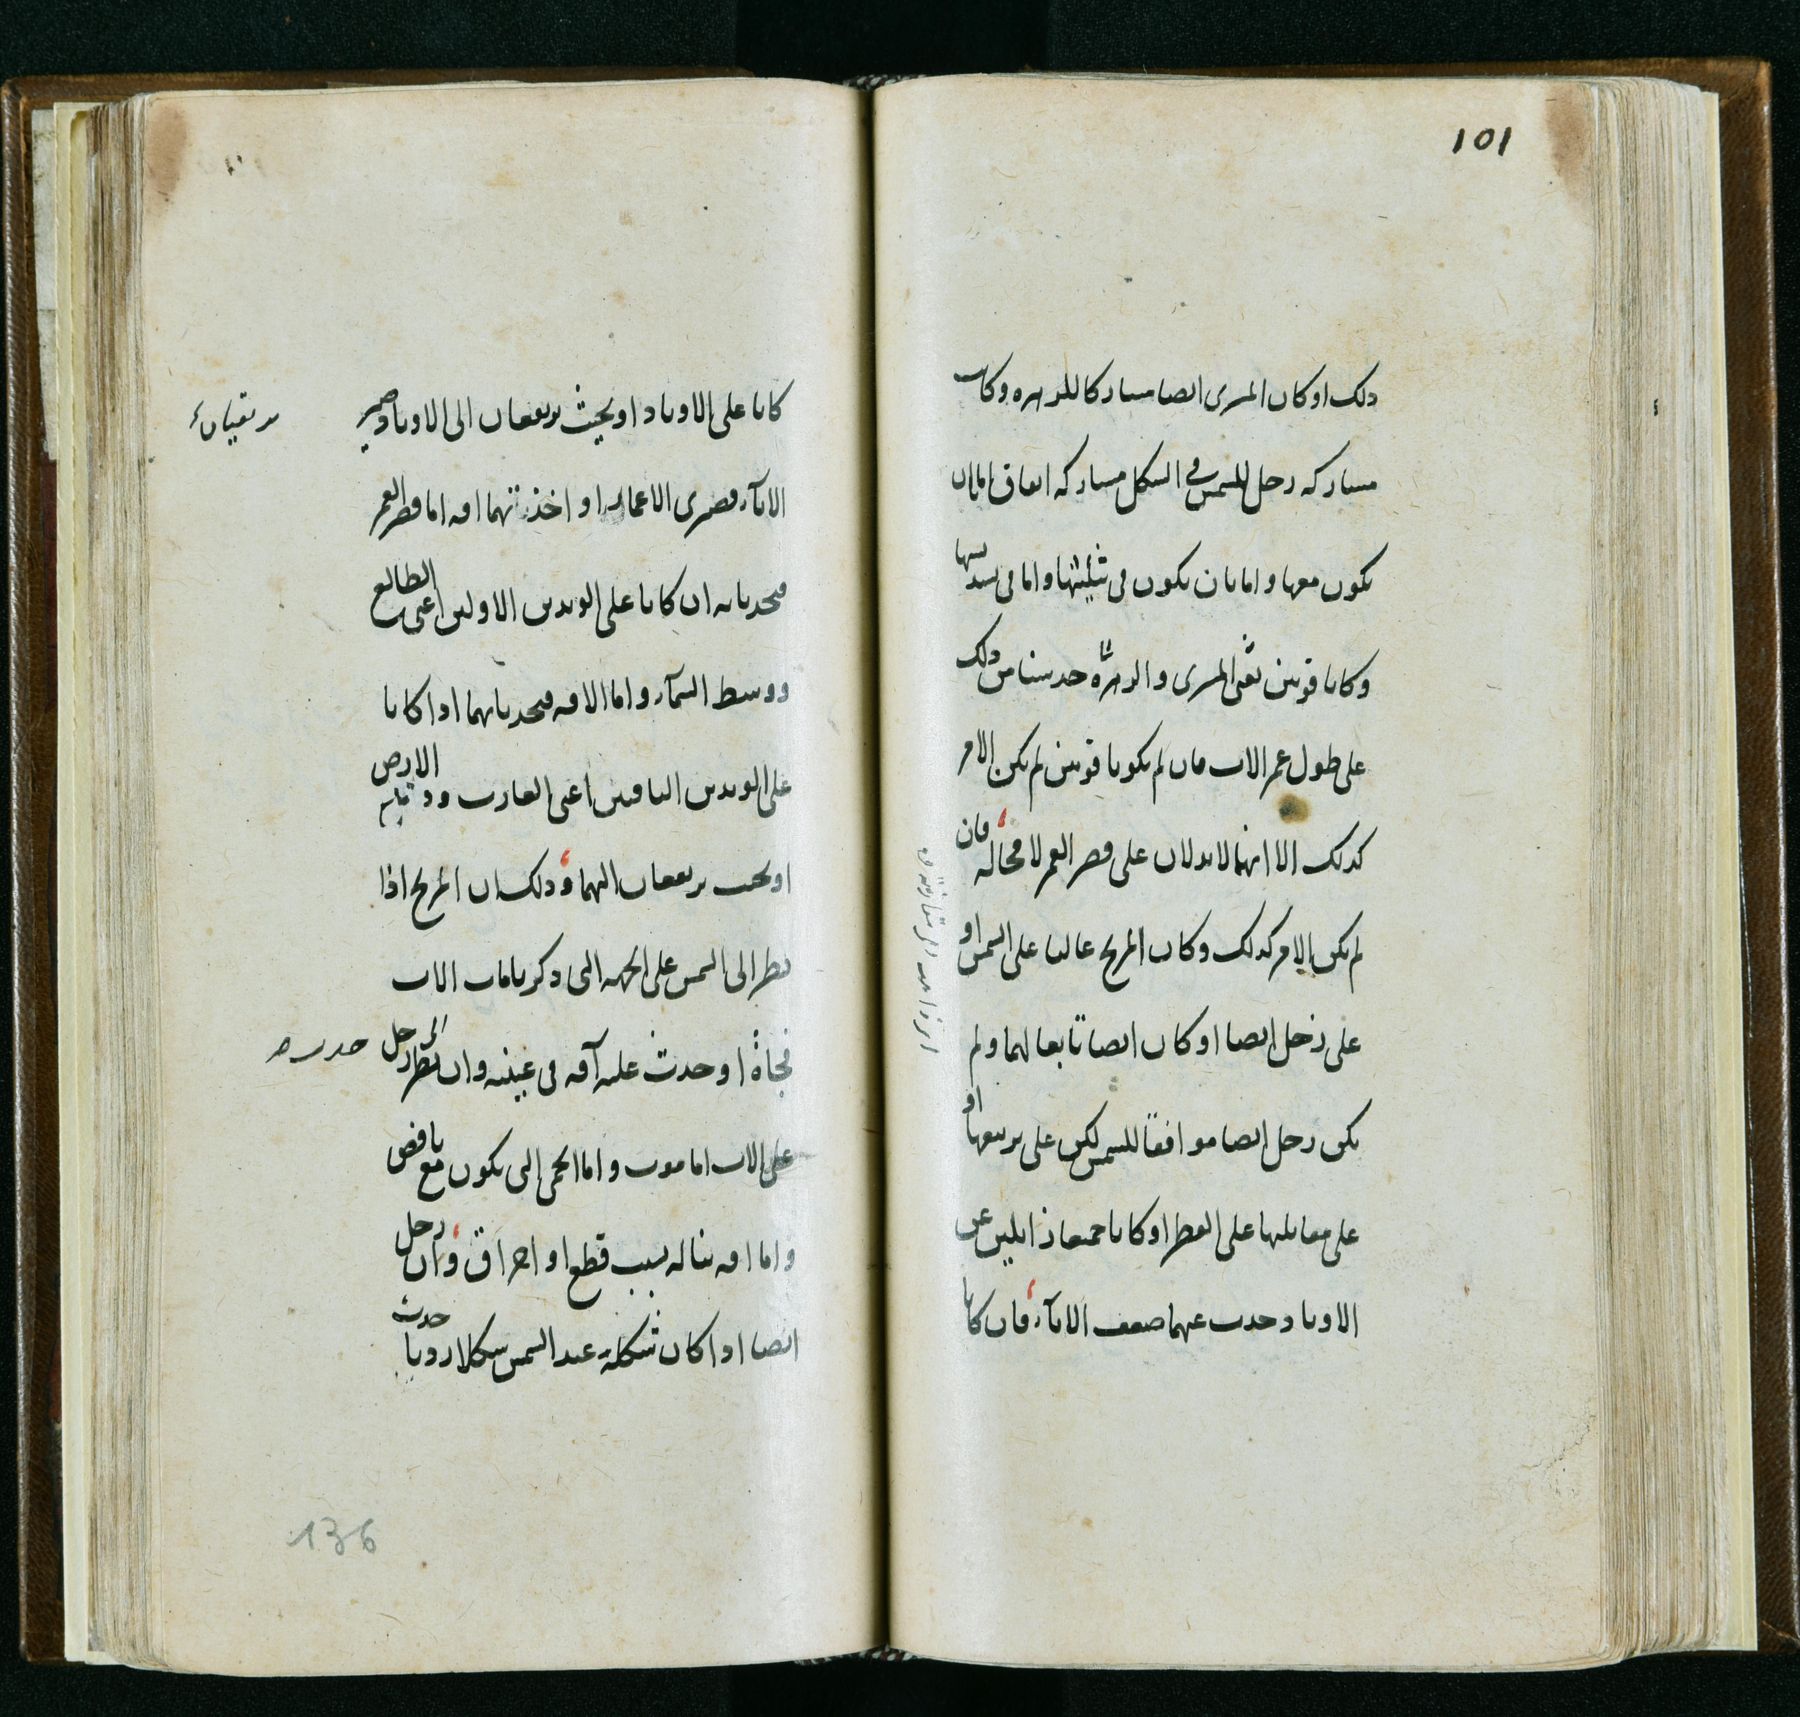 101
ذلك او كان المشترى ايضا مشاركا للزهره وكانت
مشاركه زحل للشمس في الشكل مشاركه اتفاق اما بان
يكون معها واما بان يكون في تثليثها واما في تسديسها
وكانا قويين نعنى المشترى والزهرة حدسنا من ذلك
على طول عمر الاب فان لم يكونا قويين لم يكن الامر
كذلك الا انهما لا يدلان على قصر العمر لا محاله فان
لم يكن الامر كذلك وكان المريخ عاليا على الشمس او
على زحل ايضا او كان ايضا تابعا لهما ولم
يكن زحل ايضا موافقا للشمس لكن على تربيعها او
على مقابلتها على القطر او كانا جميعا زايلين عن
الاوتاد حدث عنهما ضعف الابآء فان كانا
كانا على الاوتاد او بحيث يرتفعان الى الاوتاد صير
الابآء قصيرى الاعمار او اخذتهما افه اما قصر العمر
فيحدثانه ان كانا على الوتدين الاولين اعنى الطالع
ووسط السمآء واما الافه فيحدثانهما اذا كانا
على الوتدين الباقيين اعنى الغارب ووتد الارض
او بحيث يرتفعان اليهما وذلك ان المريخ اذا
نظر الى الشمس على الجهه التى ذكرنا مات الاب
فجاة او حدثت عليه آفه فى عينيه وان نظر الى زحل
على الاب اما موت واما الحمى التى تكون مع نافض
واما افه تناله بسبب قطع او احراق وان زحل
ايضا اذا كان شكله عند الشمس شكلا رديا حدث
136